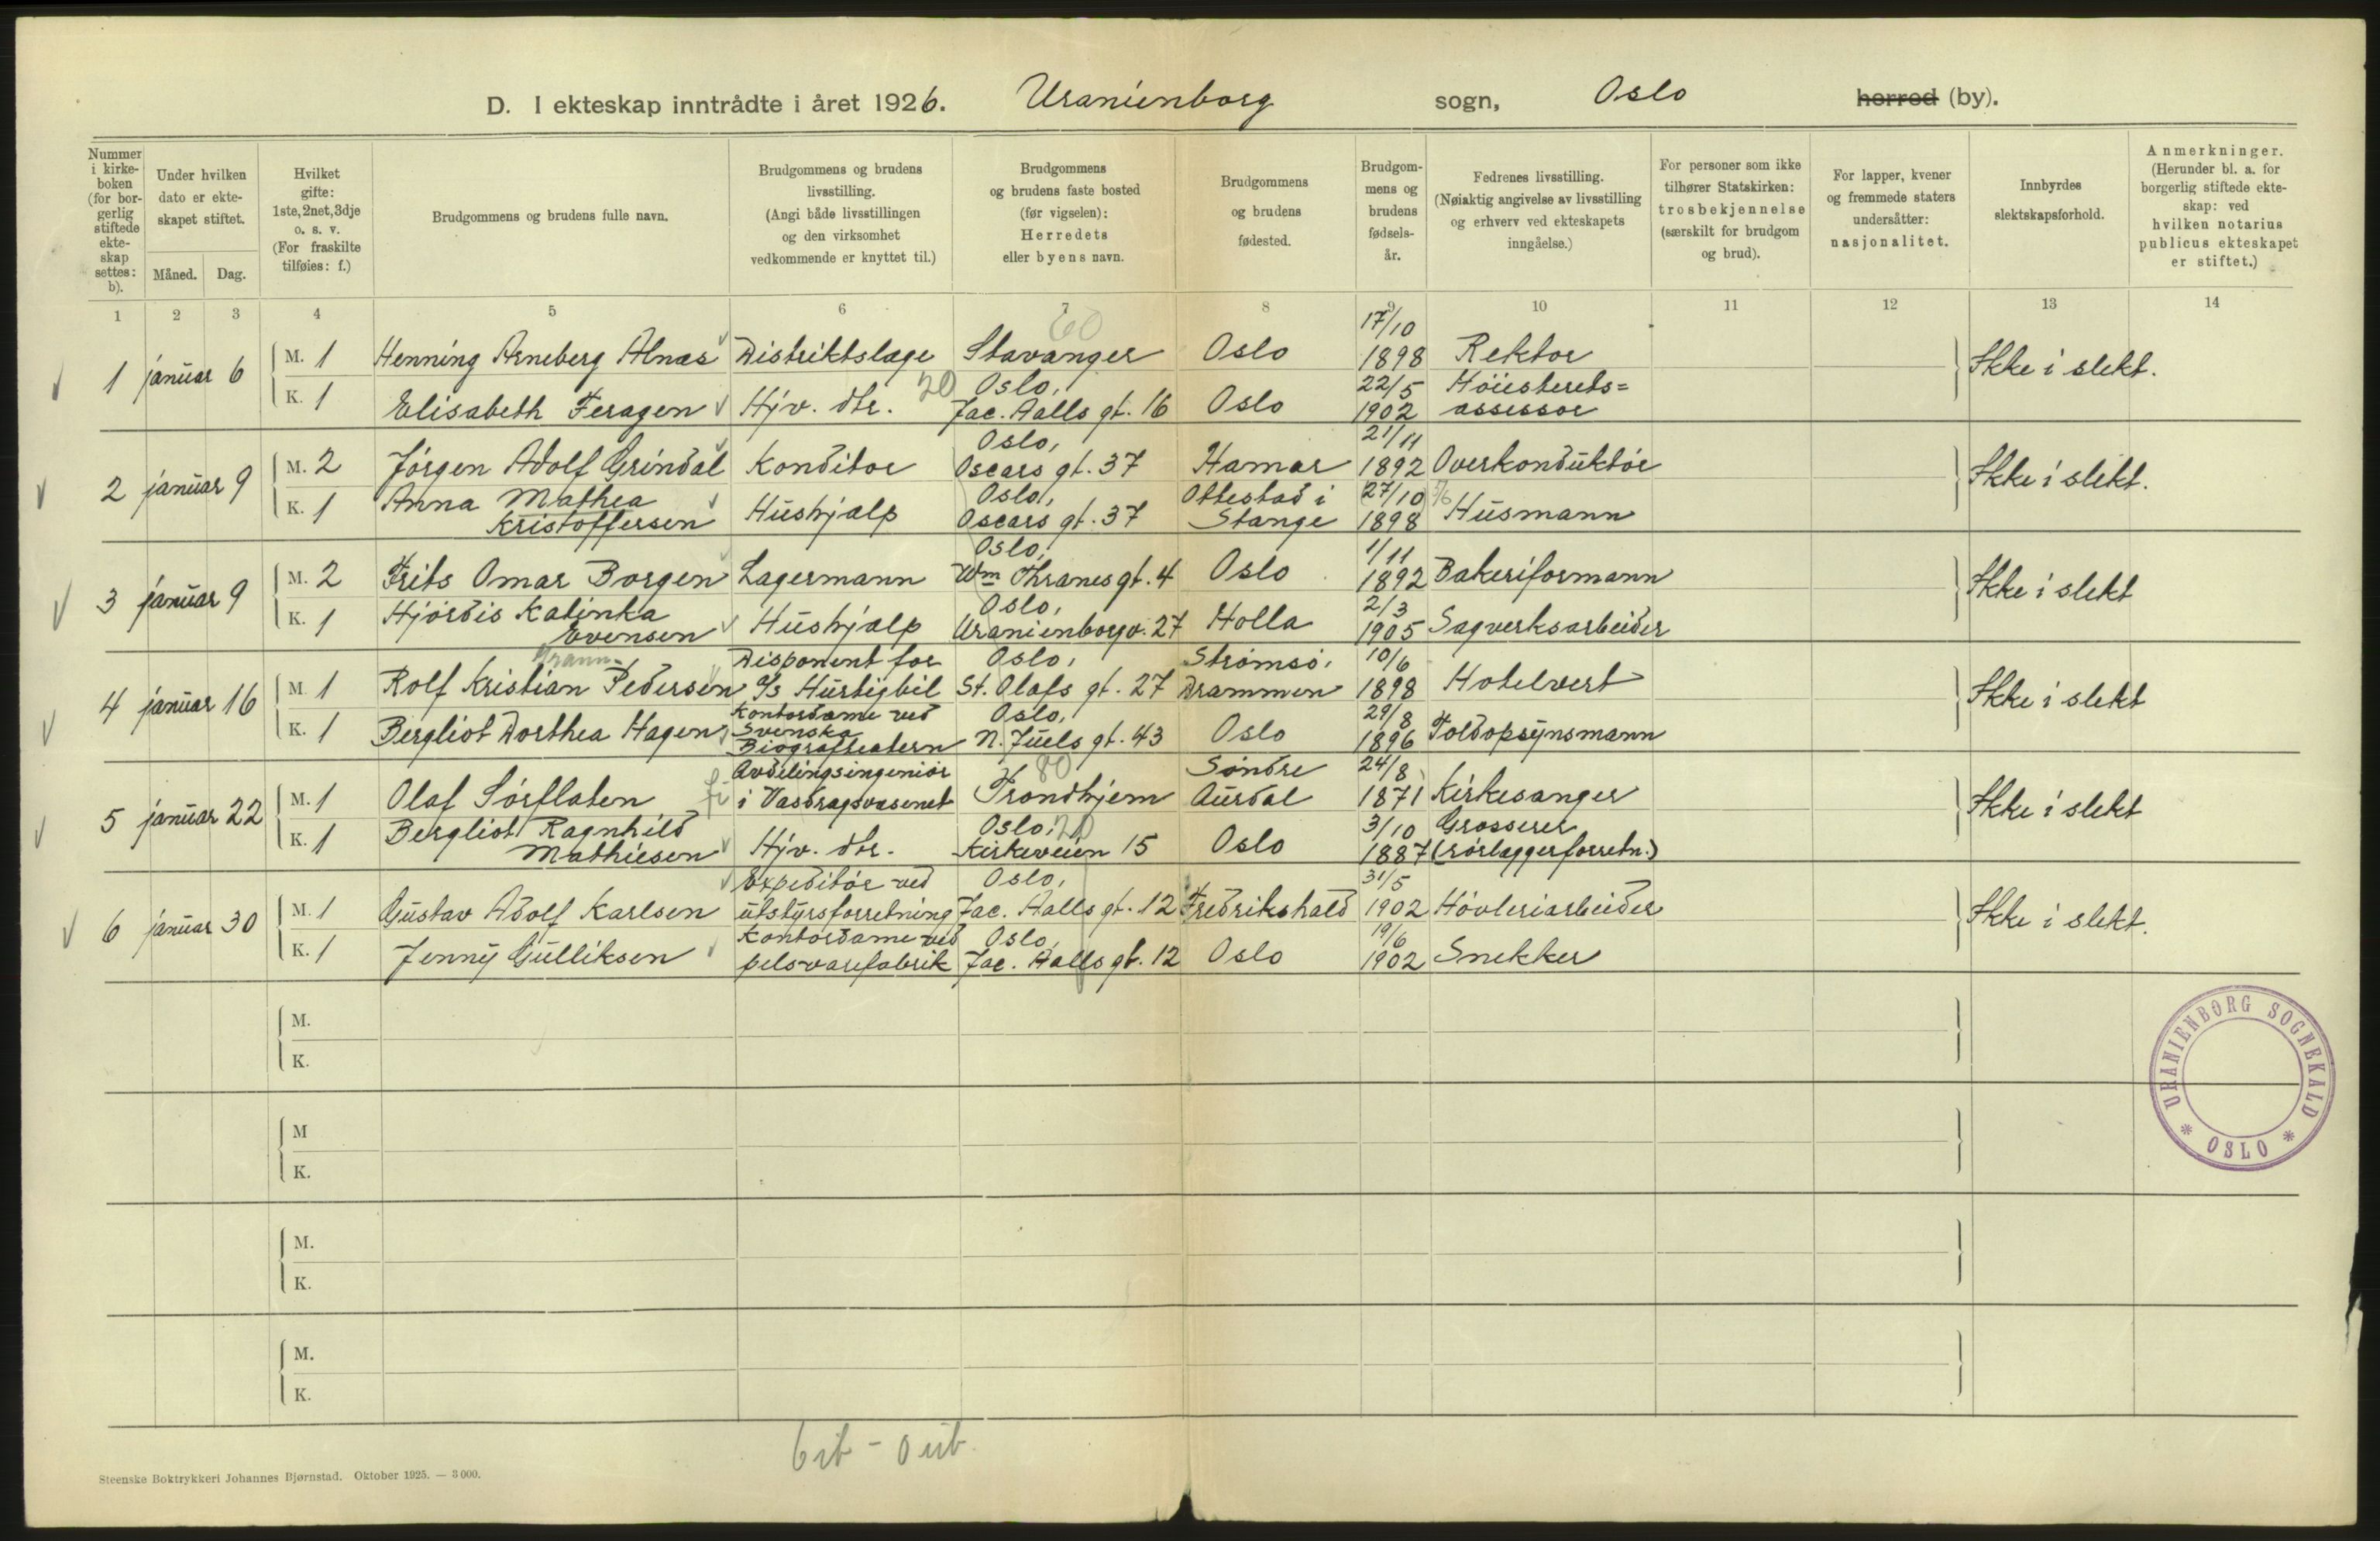 D. I ekteskap inntrådte i året 1926. Uranienborg sogn, Oslo herred (by).
Nummer i kirkeboken (for borgerlig stiftede ekteskap settes: b).
Under hvilken dato er ekteskapet stiftet.
Måned. Dag.
Hvilket gifte: 1ste, 2net, 3dje o. s. v. (For fraskilte tilføies: f.)
Brudgommens og brudens fulle navn.
Brudgommens og brudens livsstilling. (Angi både livsstillingen og den virksomhet vedkommende er knyttet til.)
Brudgommens og brudens faste bosted (før vigselen): Herredets eller byens navn.
Brudgommens og brudens fødested.
Brudgommens og brudens fødselsår.
Fedrenes livsstilling. (Nøiaktig angivelse av livsstilling og erhverv ved ekteskapets inngåelse.)
For personer som ikke tilhører Statskirken: trosbekjennelse (særskilt for brudgom og brud).
For lapper, kvener og fremmede staters undersåtter: nasjonalitet.
Innbyrdes slektskapsforhold.
Anmerkninger. (Herunder bl. a. for borgerlig stiftede ekteskap: ved hvilken notarius publicus ekteskapet er stiftet.)
1 2 3 4 5 6 7 8 9 10 11 12 13 14
60
1 januar 6 M. 1 Henning Arneberg Alnæs Distriktslæge Stavanger Oslo 17/10 1898 Rektor Ikke i slekt.
K. 1 Elisabeth Feragen Hjv. dtr. 20 Oslo, Jac. Aalls gt. 16 Oslo 22/5 1902 Höiesterets= assessor
2 januar 9 M. 2 Jörgen Adolf Grindal Konditor Oslo, Oscars gt. 37 Hamar 21/11 1892 Overkonduktör Ikke i slekt.
K. 1 Anna Mathea Kristoffersen Hushjælp Oslo, Oscars gt. 37 Ottestad i Stange 27/10 1898 Husmann
3 januar 9 M. 2 Frits Omar Borgen Lagermann Oslo, Wm Thranes gt. 4 Oslo 1/11 1892 Bakeriformann Ikke i slekt
K. 1 Hjördis Kalinka Evensen Hushjælp Oslo, Uranienborgv. 27 Holla 2/3 1905 Sagverksarbeider
4 januar 16 M. 1 Rolf Kristian Pedersen Disponent for A/S Hurtigbil Oslo, St. Olafs gt. 27 Strömsö, Drammen 10/6 1898 Hotelvert Ikke i slekt
K. 1 Bergliot Dorthea Hagen Kontordame ved Svenska Biografteatern Oslo, N. Juels gt. 43 Oslo 29/8 1896 Toldopsynsmann
5 januar 22 M. 1 Olaf Sörflaten Avdelingsingeniör i Vasdragsvæsenet 80 Trondhjem Söndre Aurdal 24/8 1871 Kirkesanger Ikke i slekt
K. 1 Bergliot Ragnhild Mathiesen Hjv. dtr. Oslo, 20 Kirkeveien 15 Oslo 3/10 1887 Grosserer (rörlæggerforretn.)
6 januar 30 M. 1 Gustav Adolf Karlsen Expeditör ved utstyrsforretning Oslo, Jac. Aalls gt. 12 Fredrikshald 31/5 1902 Hövleriarbeider Ikke i slekt.
K. 1 Jenny Gulliksen Kontordame ved pelsvarefabrik Oslo, Jac. Aalls gt. 12 Oslo 19/6 1902 Snekker
M.
K.
M
K.
M.
K.
M.
K.
URANIENBORG SOGNEKALD * OSLO *
Steenske Boktrykkeri Johannes Bjørnstad. Oktober 1925. — 3000.